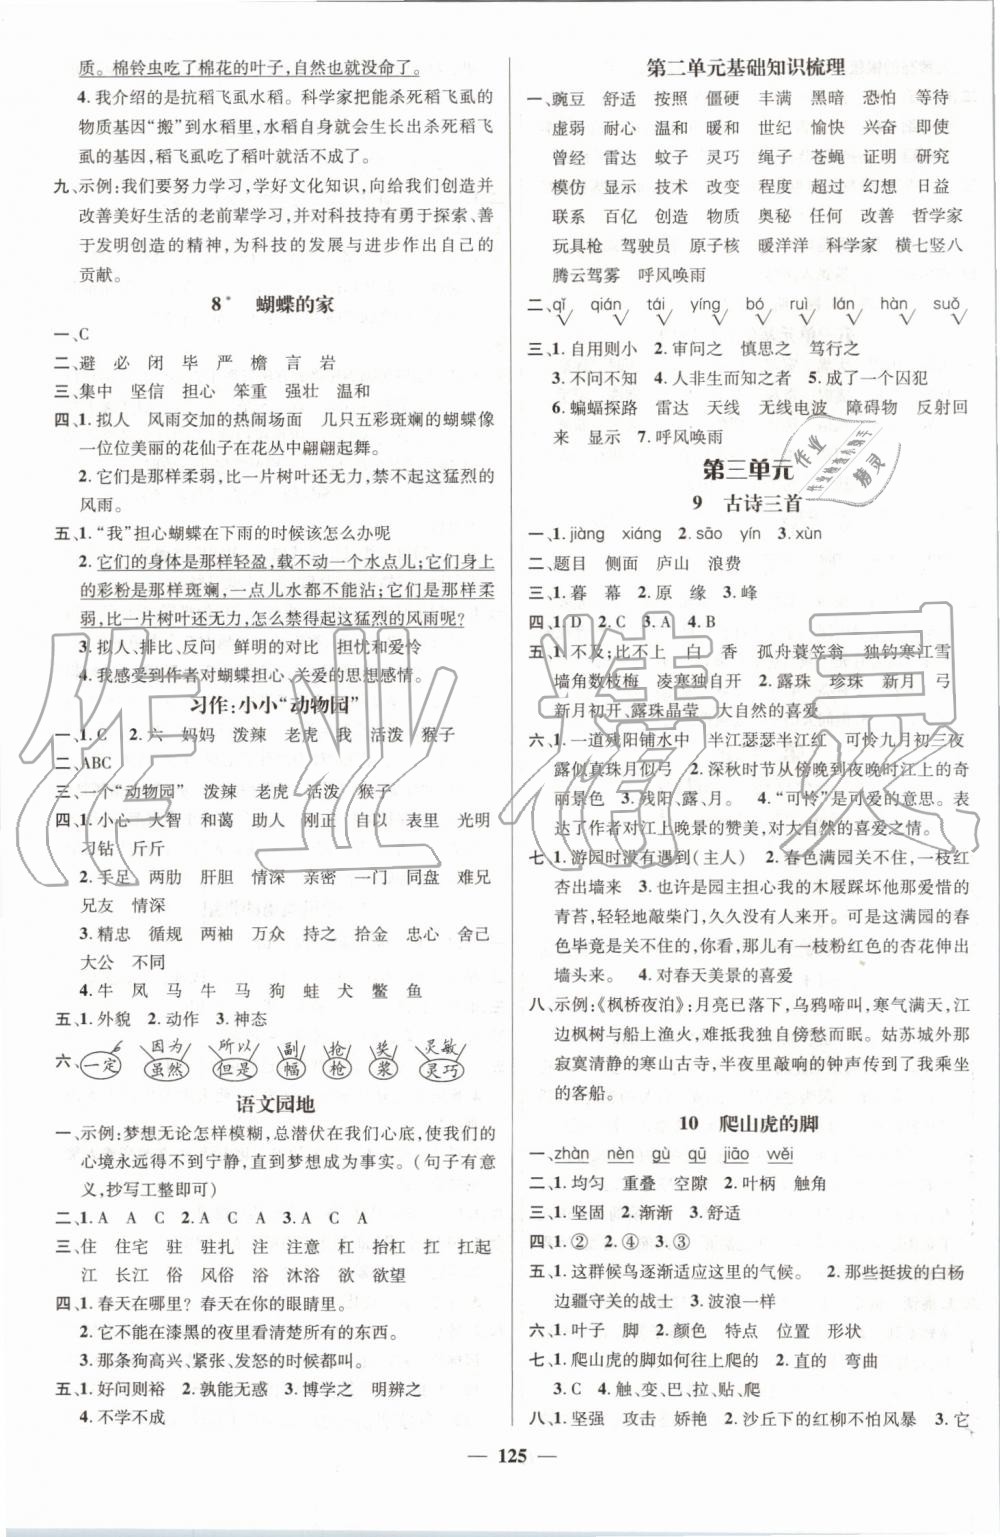 质。棉铃虫吃了棉花的叶子,自然也就没命了。
4.我介绍的是抗稻飞虱水稻。科学家把能杀死稻飞虱的
物质基因“搬”到水稻里,水稻就会生长出杀死稻飞
虱的基因,稻飞虱吃了稻叶就活不成了。
九、示例:我们要努力学习,学好文化知识,向给我们创造并
改善美好生活的老前辈学习,并对科技持有勇于探索、善
于发明创造的精神,为科技的发展与进步作出自己的
贡献。
8* 蝴蝶的家
一、C
二、避 必 闭 毕 严 檐 言 岩
三、集中 坚信 担心 笨重 强壮 温和
四、1.拟人 风雨交加的热闹场面 几只五彩斑斓的蝴蝶像
一位位美丽的花仙子在花丛中翩翩起舞。
2.它们是那样柔弱,比一片树叶还无力,怎禁得起这猛烈的
风雨。
五、1.“我”担心蝴蝶在下雨的时候该怎么办呢
2.它们的身体是那样轻盈,载不动一个水点儿;它们身上
的彩粉是那样斑斓,一点儿水都不能沾;它们是那样柔
弱,比一片树叶还无力,怎么禁得起这猛烈的风雨呢?
3.拟人、排比、反问 鲜明的对比 担忧和爱怜
4.我感受到作者对蝴蝶担心、关爱的思想感情。
习作:小小“动物园”
一、1.C 2.六 妈妈 泼辣 老虎 我 活泼 猴子
二、ABC
三、一个“动物园” 泼辣 老虎 活泼 猴子
四、1.小心 大智 和蔼 助人 刚正 自以 表里 光明
刁钻 斤斤
2.手足 两肋 肝胆 情深 亲密 一门 同盘 难兄
兄友 情深
3.精忠 循规 两袖 万众 持之 拾金 忠心 舍己
大公 不同
4.牛 凤 马 牛 马 狗 蛙 犬 鳖 鱼
五、1.外貌 2.动作 3.神态
六、一定 因为 虽然 所以 但是 副 幅 抢 枪 奖 浆 灵敏 灵巧
语文园地
一、示例:梦想无论怎样模糊,总潜伏在我们心底,使我们的
心境永远得不到宁静,直到梦想成为事实。(句子有意
义,抄写工整即可)
二、1.A A C 2.A A C 3.A C A
三、住 住宅 驻 驻扎 注 注意 杠 抬杠 扛 扛起
江 长江 俗 风俗 浴 沐浴 欲 欲望
四、1.春天在哪里?春天在你的眼睛里。
2.它不能在漆黑的夜里看清楚所有的东西。
3.那条狗高兴、紧张、发怒的时候都叫。
五、1.好问则裕 2.孰能无惑 3.博学之 明辨之
4.不学不成
第二单元基础知识梳理
一、豌豆 舒适 按照 僵硬 丰满 黑暗 恐怕 等待
虚弱 耐心 温和 暖和 世纪 愉快 兴奋 即使
曾经 雷达 蚊子 灵巧 绳子 苍蝇 证明 研究
模仿 显示 技术 改变 程度 超过 幻想 日益
联系 百亿 创造 物质 奥秘 任何 改善 哲学家
玩具枪 驾驶员 原子核 暖洋洋 科学家 横七竖八
腾云驾雾 呼风唤雨
二、qǐ qián tái yíng bó ruì lán hàn suǒ
三、1.自用则小 2.审问之 慎思之 笃行之
3.不问不知 4.人非生而知之者 5.成了一个囚犯
6.蝙蝠探路 雷达 天线 无线电波 障碍物 反射回
来 显示 7.呼风唤雨
第三单元
9 古诗三首
一、1.jiàng xiáng 2.sāo yín 3.xùn
二、题目 侧面 庐山 浪费
三、1.暮 幕 2.原 缘 3.峰
四、1.D 2.C 3.A 4.B
五、1.不及;比不上 白 香 孤舟蓑笠翁 独钓寒江雪
墙角数枝梅 凌寒独自开 2.露珠 珍珠 新月 弓
新月初升、露珠晶莹 大自然的喜爱
六、1.一道残阳铺水中 半江瑟瑟半江红 可怜九月初三夜
露似真珠月似弓 2.深秋时节从傍晚到夜晚时江上的奇
丽景色 3.残阳、露、月。 4.“可怜”是可爱的意思。表
达了作者对江上晚景的赞美,对大自然的喜爱之情。
七、1.游园时没有遇到(主人) 2.春色满园关不住,一枝红
杏出墙来 3.也许是园主担心我的木屐踩坏他那爱惜的
青苔,轻轻地敲柴门,久久没有人来开。可是这满园的春
色毕竟是关不住的,你看,那儿有一枝粉红色的杏花伸出
墙头来。 4.对春天美景的喜爱
八、示例:《枫桥夜泊》:月亮已落下,乌鸦啼叫,寒气满天,江
边枫树与船上渔火,难抵我独自傍愁而眠。姑苏城外那
寂寞清静的寒山古寺,半夜里敲响的钟声传到了我乘坐
的客船。
10 爬山虎的脚
一、zhàn nèn gù qū jiāo wěi
二、1.均匀 重叠 空隙 2.叶柄 触角
三、1.坚固 2.渐渐 3.舒适
四、1.② 2.④ 3.③
五、1.这群候鸟逐渐适应这里的气候。 2.那些挺拔的白杨
边疆守关的战士 3.波浪一样
六、1.叶子 脚 2.颜色 特点 位置 形状
七、1.爬山虎的脚如何往上爬的 2.直的 弯曲
3.C 4.触、变、巴、拉、贴、爬
八、1.坚强 攻击 娇艳 2.沙丘下的红柳不怕风暴 3.它
— 125 —
作业精灵